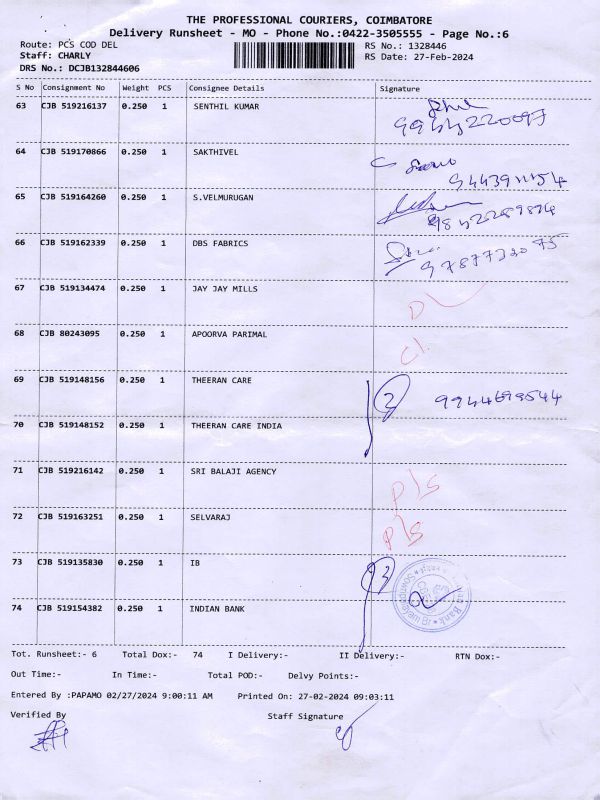 THE PROFESSIONAL COURIERS, COIMBATORE
Delivery Runsheet - MO - Phone No.:0422-3505555 - Page No.:6
Route: PCS COD DEL RS No.: 1328446
Staff: CHARLY RS Date: 27-Feb-2024
DRS No.: DCJB132844606
S No Consignment No Weight PCS Consignee Details Signature
63 CJB 519216137 0.250 1 SENTHIL KUMAR
64 CJB 519170866 0.250 1 SAKTHIVEL
65 CJB 519164260 0.250 1 S.VELMURUGAN
66 CJB 519162339 0.250 1 DBS FABRICS
67 CJB 519134474 0.250 1 JAY JAY MILLS
68 CJB 80243095 0.250 1 APOORVA PARIMAL
69 CJB 519148156 0.250 1 THEERAN CARE 2
70 CJB 519148152 0.250 1 THEERAN CARE INDIA
71 CJB 519216142 0.250 1 SRI BALAJI AGENCY P/S
72 CJB 519163251 0.250 1 SELVARAJ P/S
73 CJB 519135830 0.250 1 IB
74 CJB 519154382 0.250 1 INDIAN BANK
Tot. Runsheet:- 6 Total Dox:- 74 I Delivery:- II Delivery:- RTN Dox:-
Out Time:- In Time:- Total POD:- Delvy Points:-
Entered By :PAPAMO 02/27/2024 9:00:11 AM Printed On: 27-02-2024 09:03:11
Verified By Staff Signature